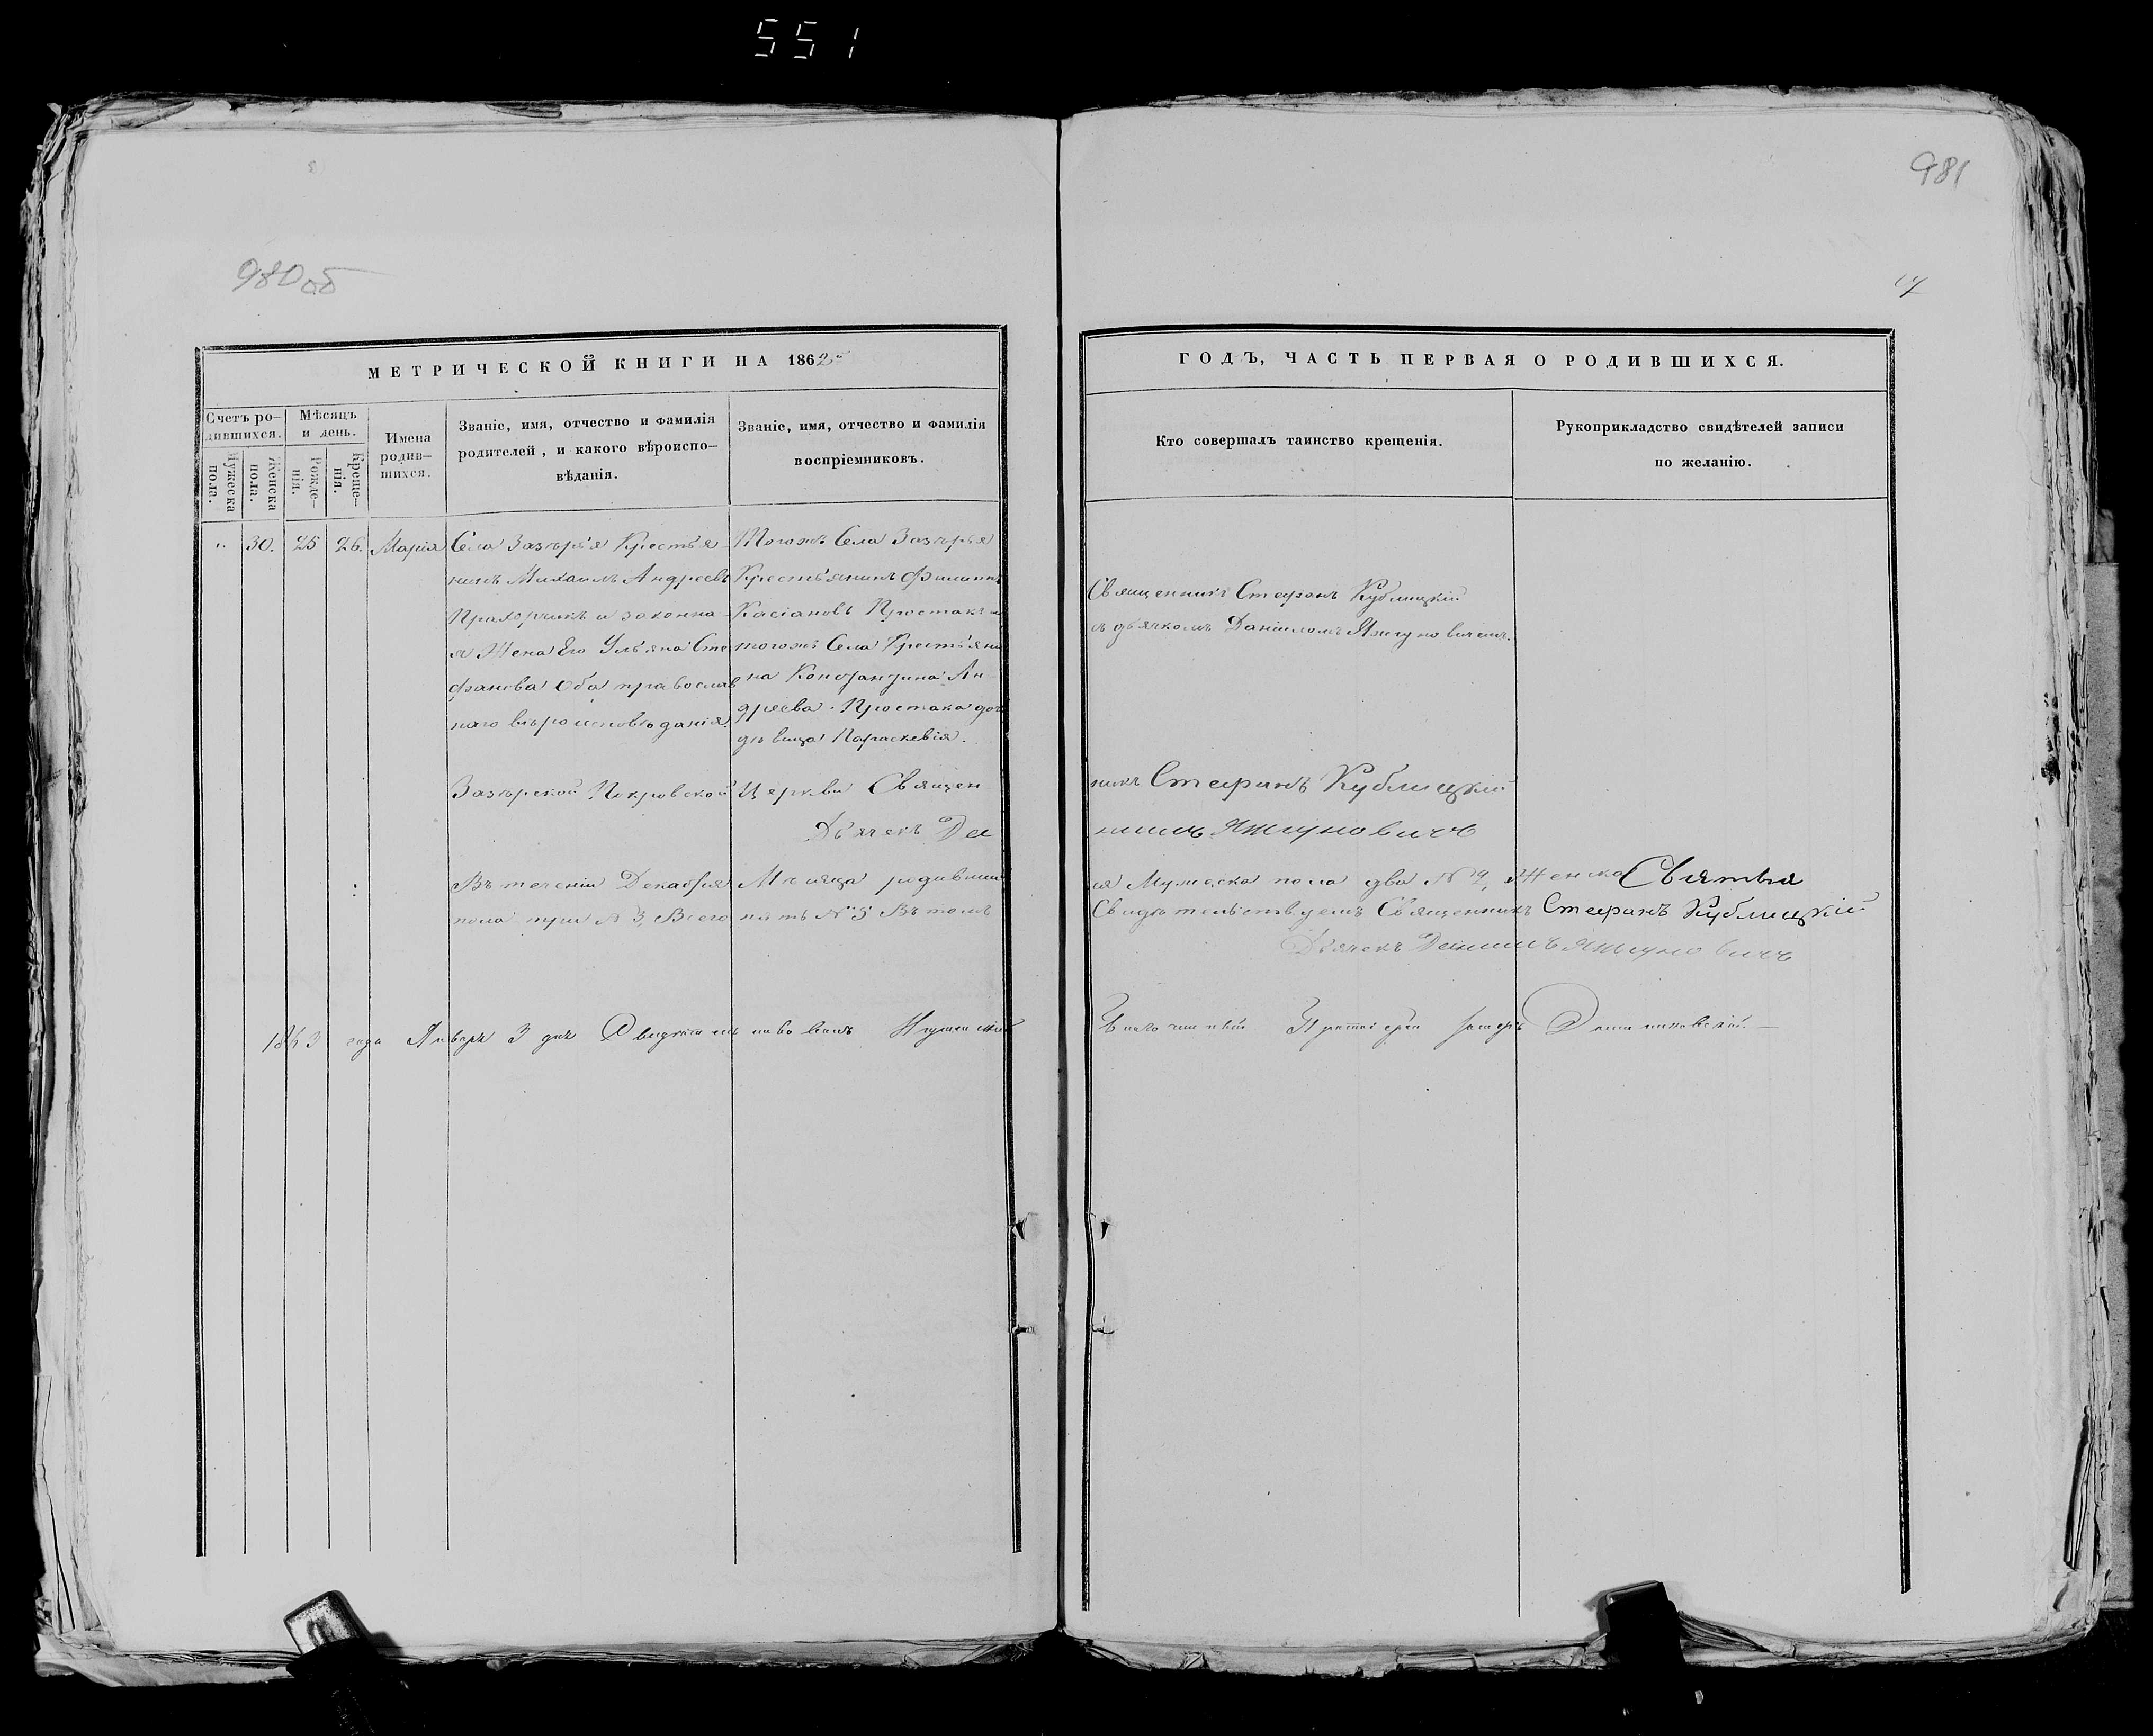 551
981
980 об
17
МЕТРИЧЕСКОЙ КНИГИ НА 1862
ГОДЪ, ЧАСТЬ ПЕРВАЯ О РОДИВШИХСЯ.
Счетъ ро-
дившихся.
Мужеска
пола.
Женска
пола.
Мѣсяцъ
и день.
Рожде-
нія.
Креще-
нія.
Имена
родив-
шихся.
Званіе, имя, отчество и фамилія
родителей, и какого вѣроиспо-
вѣданія.
Званіе, имя, отчество и фамилія
воспріемниковъ.
Кто совершалъ таинство крещенія.
Рукоприкладство свидѣтелей записи
по желанію.
" 30. 25 26. Марія
Села Зазѣрья Крестья-
нинъ Михаилъ Андреевъ
Прахорчикъ и законна-
я Жена Его Ульяна Сте
фанова Оба православ
наго вѣроисповѣданія.
Тогожъ Села Зазѣрья
Крестьянинъ Филиппъ
Касіановъ Простакъ и
тогожъ Села Крестьяни
на Констанзина Ан-
дреева Простака доч
дѣвица Параскевія.
Священникъ Стефанъ Кублицкій
съ дьячкомъ Даніиломъ Яжгуновичемъ.
Зазѣрской Покровской Церкви Священ
никъ Стефанъ Кублицкій
Дьячекъ Да
ніилъ Яжгуновичъ
Въ теченіи Декабря Мѣсяца родивши
ся Мужеска пола два № 2, Женска
пола три № 3, Всего пять № 5 Въ томъ
Свидѣтельствуемъ Священникъ Стефанъ Кублицкій
Дьячекъ Даніилъ Яжгуновичъ
1863 года Января 3 дня Свидѣтельствовалъ
Благочинный Протоіерей